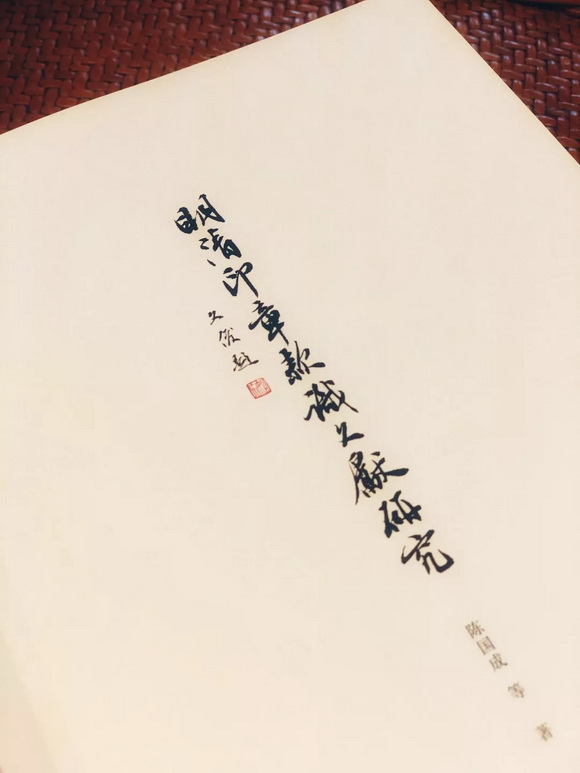 明清印章款識文獻研究
文俊題
陈国成 等 著